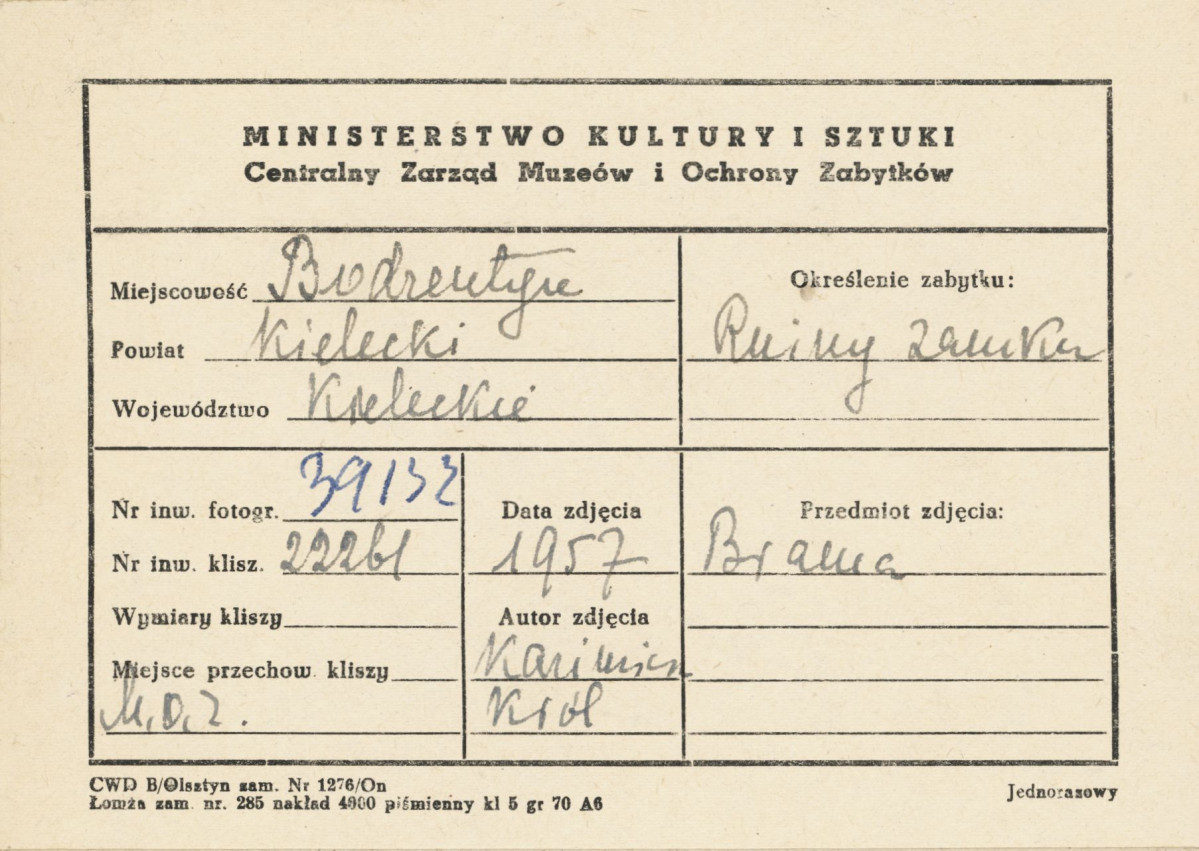 MINISTERSTWO KULTURY I SZTUKI
Centralny Zarząd Muzeów i Ochrony Zabytków
Miejscowość Bodzentyn
Powiat Kielecki
Województwo Kieleckie
Określenie zabytku:
Ruiny zamku
Nr inw. fotogr. 39132
Nr inw. klisz. 22261
Wymiary kliszy
Miejsce przechow. kliszy
M.O.Z.
Data zdjęcia
1957
Autor zdjęcia
Kazimierz
Król
Przedmiot zdjęcia:
Brama
CWD B/Olsztyn zam. Nr 1276/On
Łomża zam. nr. 285 nakład 4900 piśmienny kl 5 gr 70 A6
Jednorazowy